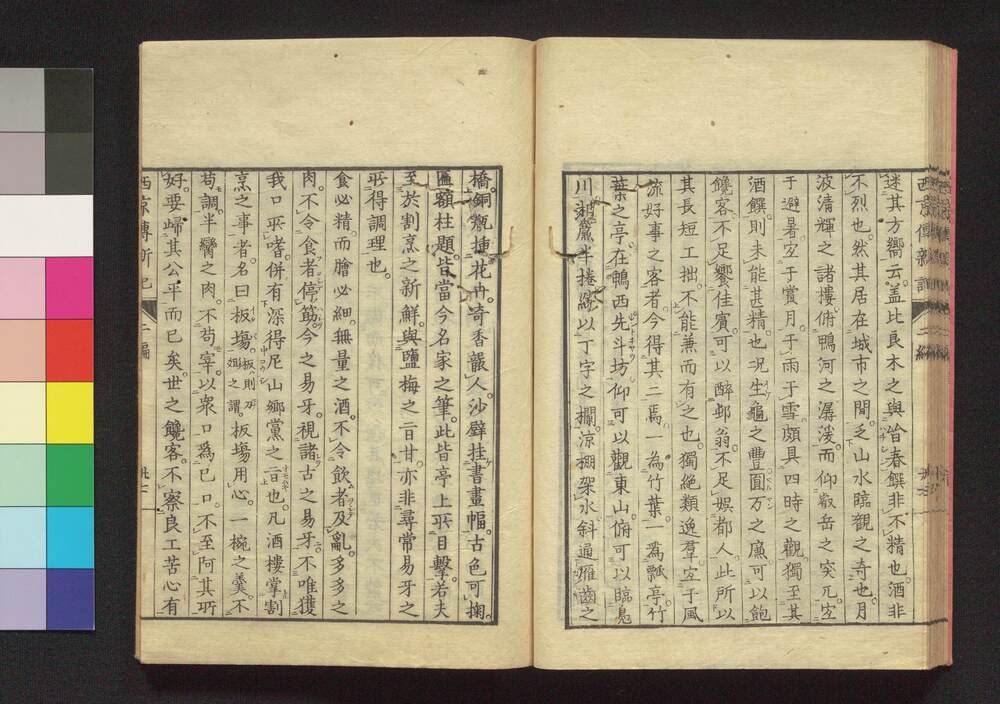 迷其方嚮云蓋比良木之與㫪春饌非不精也酒非
不烈也然其居在城市之間乏山水臨觀之奇也月
波清輝之諸樓俯鴨河之潺湲而仰叡岳之突兀宜
于避暑宜于賞月于雨于雪頗具四時之觀獨至其
酒饌則未能甚精也况生龜之豐圓万之廉可以飽
饒客不足饗佳賓可以醉邨翁不足娛都人此所以
其長短工拙不能兼而有之也獨絕類逸羣宜于風
流好事之客者今得其二焉一為竹葉一為瓢亭竹
葉之亭在鴨西先斗坊仰可以觀東山俯可以臨鳬
川湘簾半捲繞以丁字之欄涼棚架水斜通雁齒之
橋銅瓶挿花冉冉奇香襲人沙壁挂書畫幅古色可掬
匾額柱題皆當今名家之筆此皆亭上所目擊若夫
至於割烹之新鮮與鹽梅之旨甘亦非尋常易牙之
所得調理也
食必精而膾必細無量之酒不令飲者及亂多多之
肉不令食者停筯今之易牙視諸古之易牙不唯獲
我口所嗜併有深得尼山鄉黨之旨也凡酒樓掌割
烹之事者名曰板場板則刀俎之謂板場用心一椀之羹不
苟調半臠之肉不苟宰以衆口為已口不至阿其所
好要歸其公平而已矣世之饒客不察良工苦心有
二編